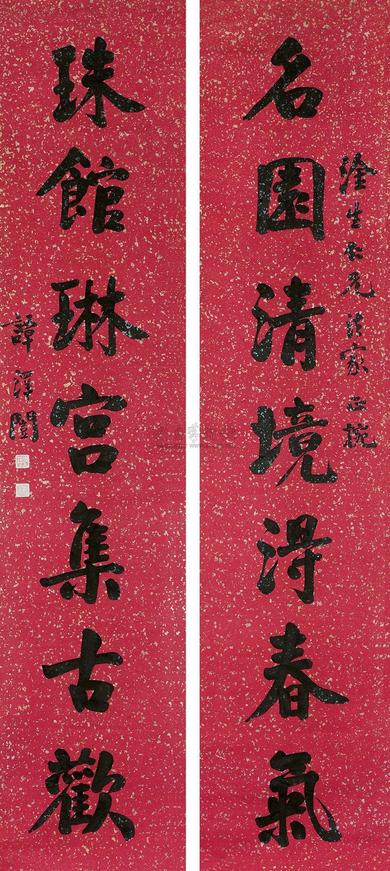 名園清境得春氣
淦生仁兄法家正捥
珠館琳宮集古歡
譚澤闓